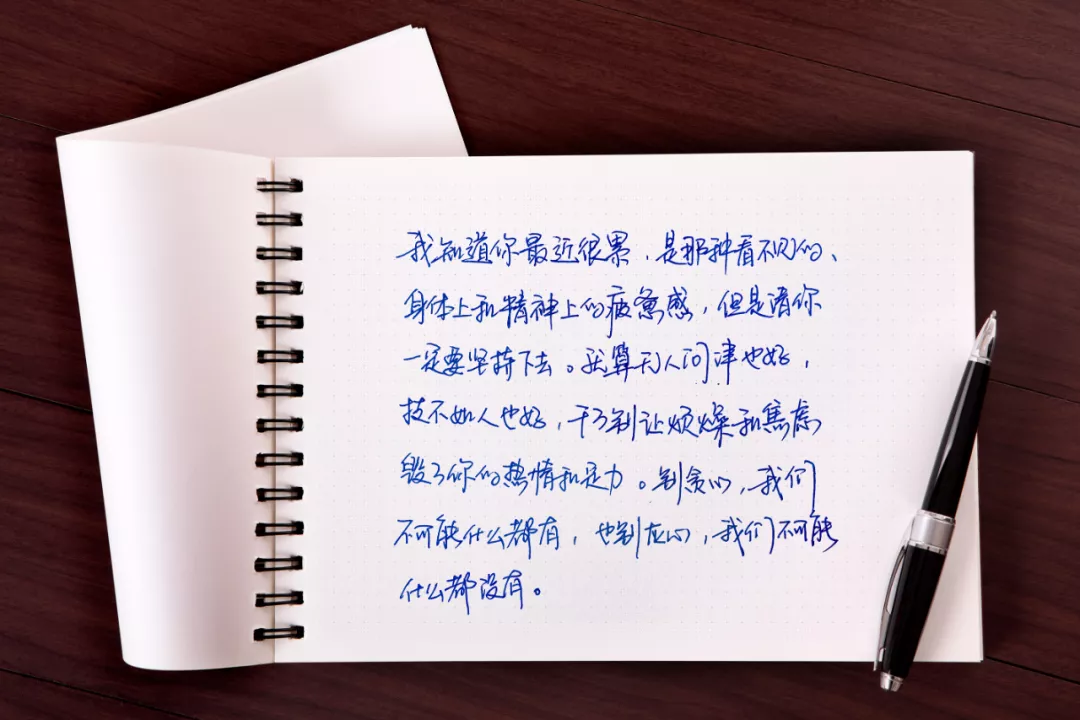 我知道你最近很累，是那种看不见的、
身体上和精神上的疲惫感，但是请你
一定要坚持下去。就算无人问津也好，
技不如人也好，千万别让烦燥和焦虑
毁了你的热情和定力。别贪心，我们
不可能什么都有，也别灰心，我们不可能
什么都没有。